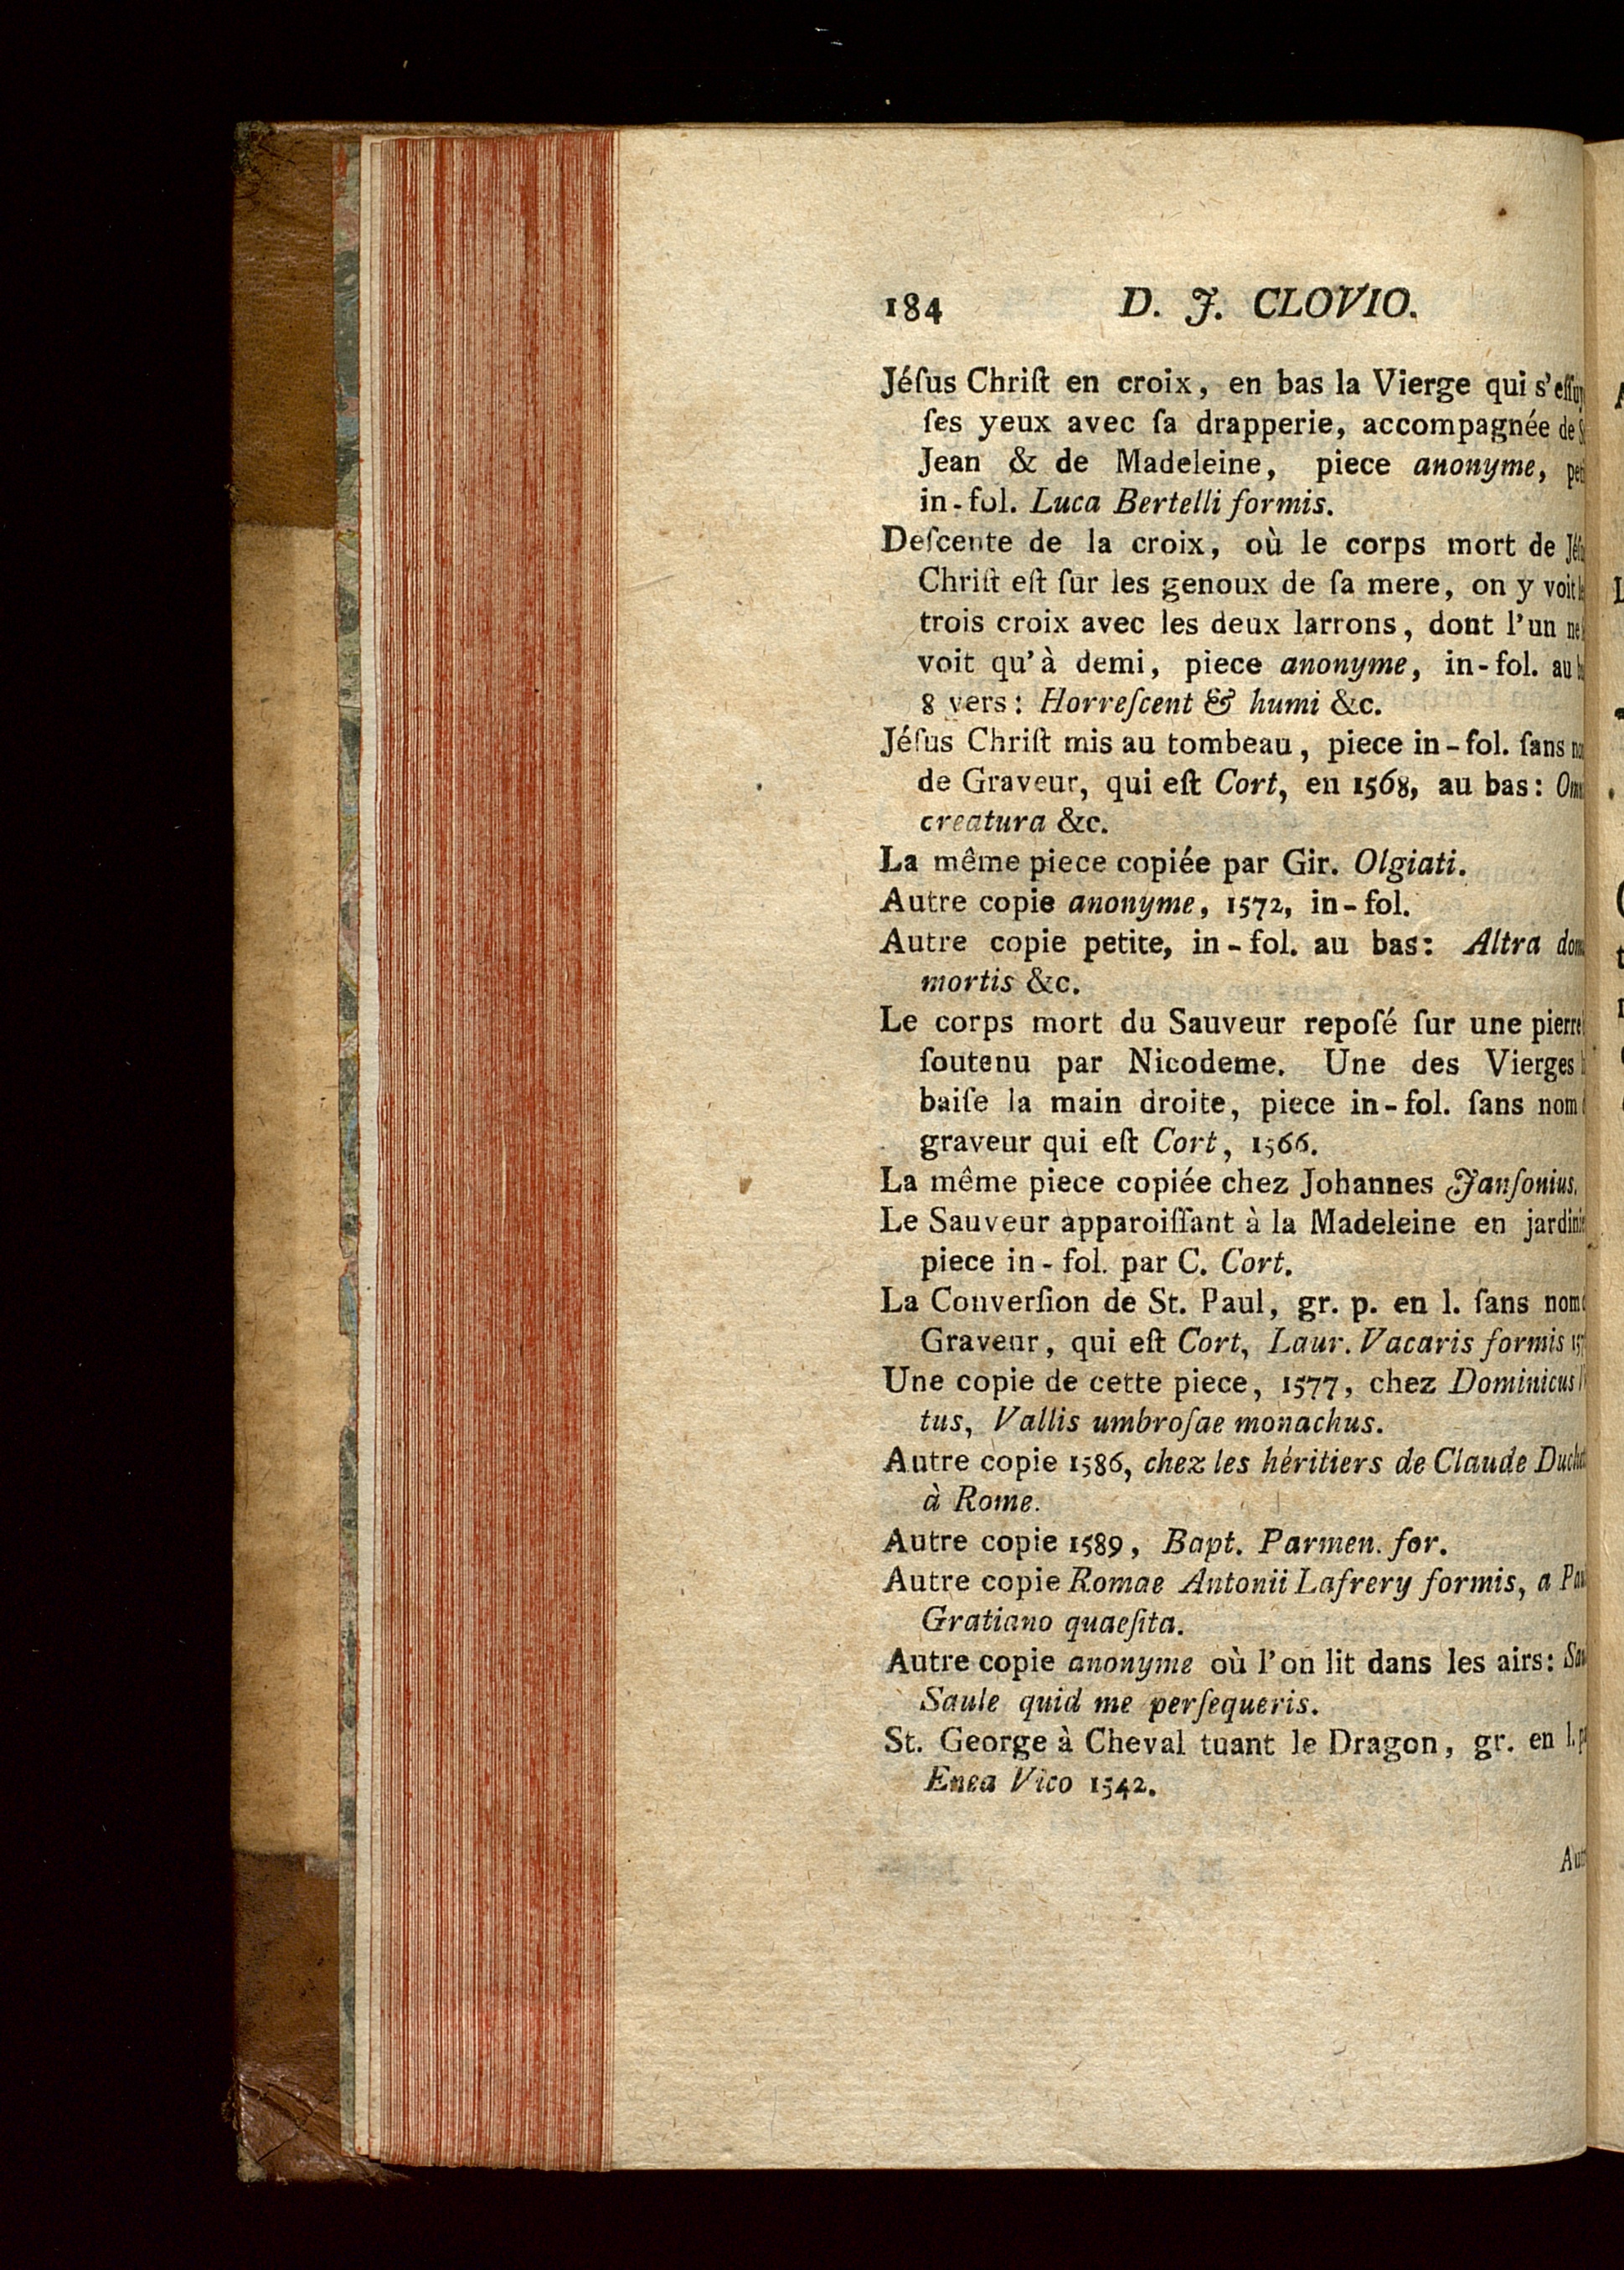 184 D. J. CLOVIO.
Jéſus Chriſt en croix, en bas la Vierge qui s'eſſuy
ſes yeux avec ſa drapperie, accompagnée de
Jean & de Madeleine, piece anonyme,
in-fol. Luca Bertelli formis.
Deſcente de la croix, où le corps mort de
Chriſt eſt ſur les genoux de ſa mere, on y voit
trois croix avec les deux larrons, dont l'un ne
voit qu'à demi, piece anonyme, in-fol. au
8 vers: Horreſcent & humi &c.
Jéſus Chriſt mis au tombeau, piece in-fol. ſans
de Graveur, qui eſt Cort, en 1568, au bas:
creatura &c.
La même piece copiée par Gir. Olgiati.
Autre copie anonyme, 1572, in-fol.
Autre copie petite, in-fol. au bas: Altra
mortis &c.
Le corps mort du Sauveur repoſé ſur une pierre
ſoutenu par Nicodeme. Une des Vierges
baiſe la main droite, piece in-fol. ſans nom
graveur qui eſt Cort, 1566.
La même piece copiée chez Johannes Janſonius.
Le Sauveur apparoiſſant à la Madeleine en jardini
piece in-fol. par C. Cort.
La Converſion de St. Paul, gr. p. en l. ſans nom
Graveur, qui eſt Cort, Laur. Vacaris formis
Une copie de cette piece, 1577, chez Dominicus
tus, Vallis umbroſae monachus.
Autre copie 1586, chez les héritiers de Claude Duch
à Rome.
Autre copie 1589, Bapt. Parmen. for.
Autre copie Romae Antonii Lafrery formis, a
Gratiano quaeſita.
Autre copie anonyme où l'on lit dans les airs:
Saule quid me perſequeris.
St. George à Cheval tuant le Dragon, gr. en l.
Enea Vico 1542.